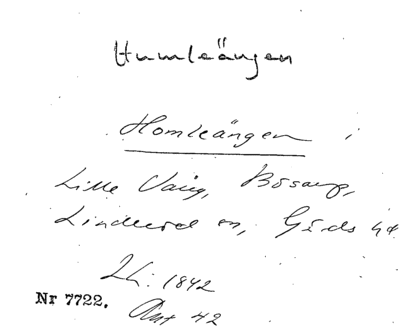 Humleängen
Homleängen i
Lille Vång, Bosarp,
Linderöd sn, Gärds hd
LL: 1842
Nr 7722.
Akt 42